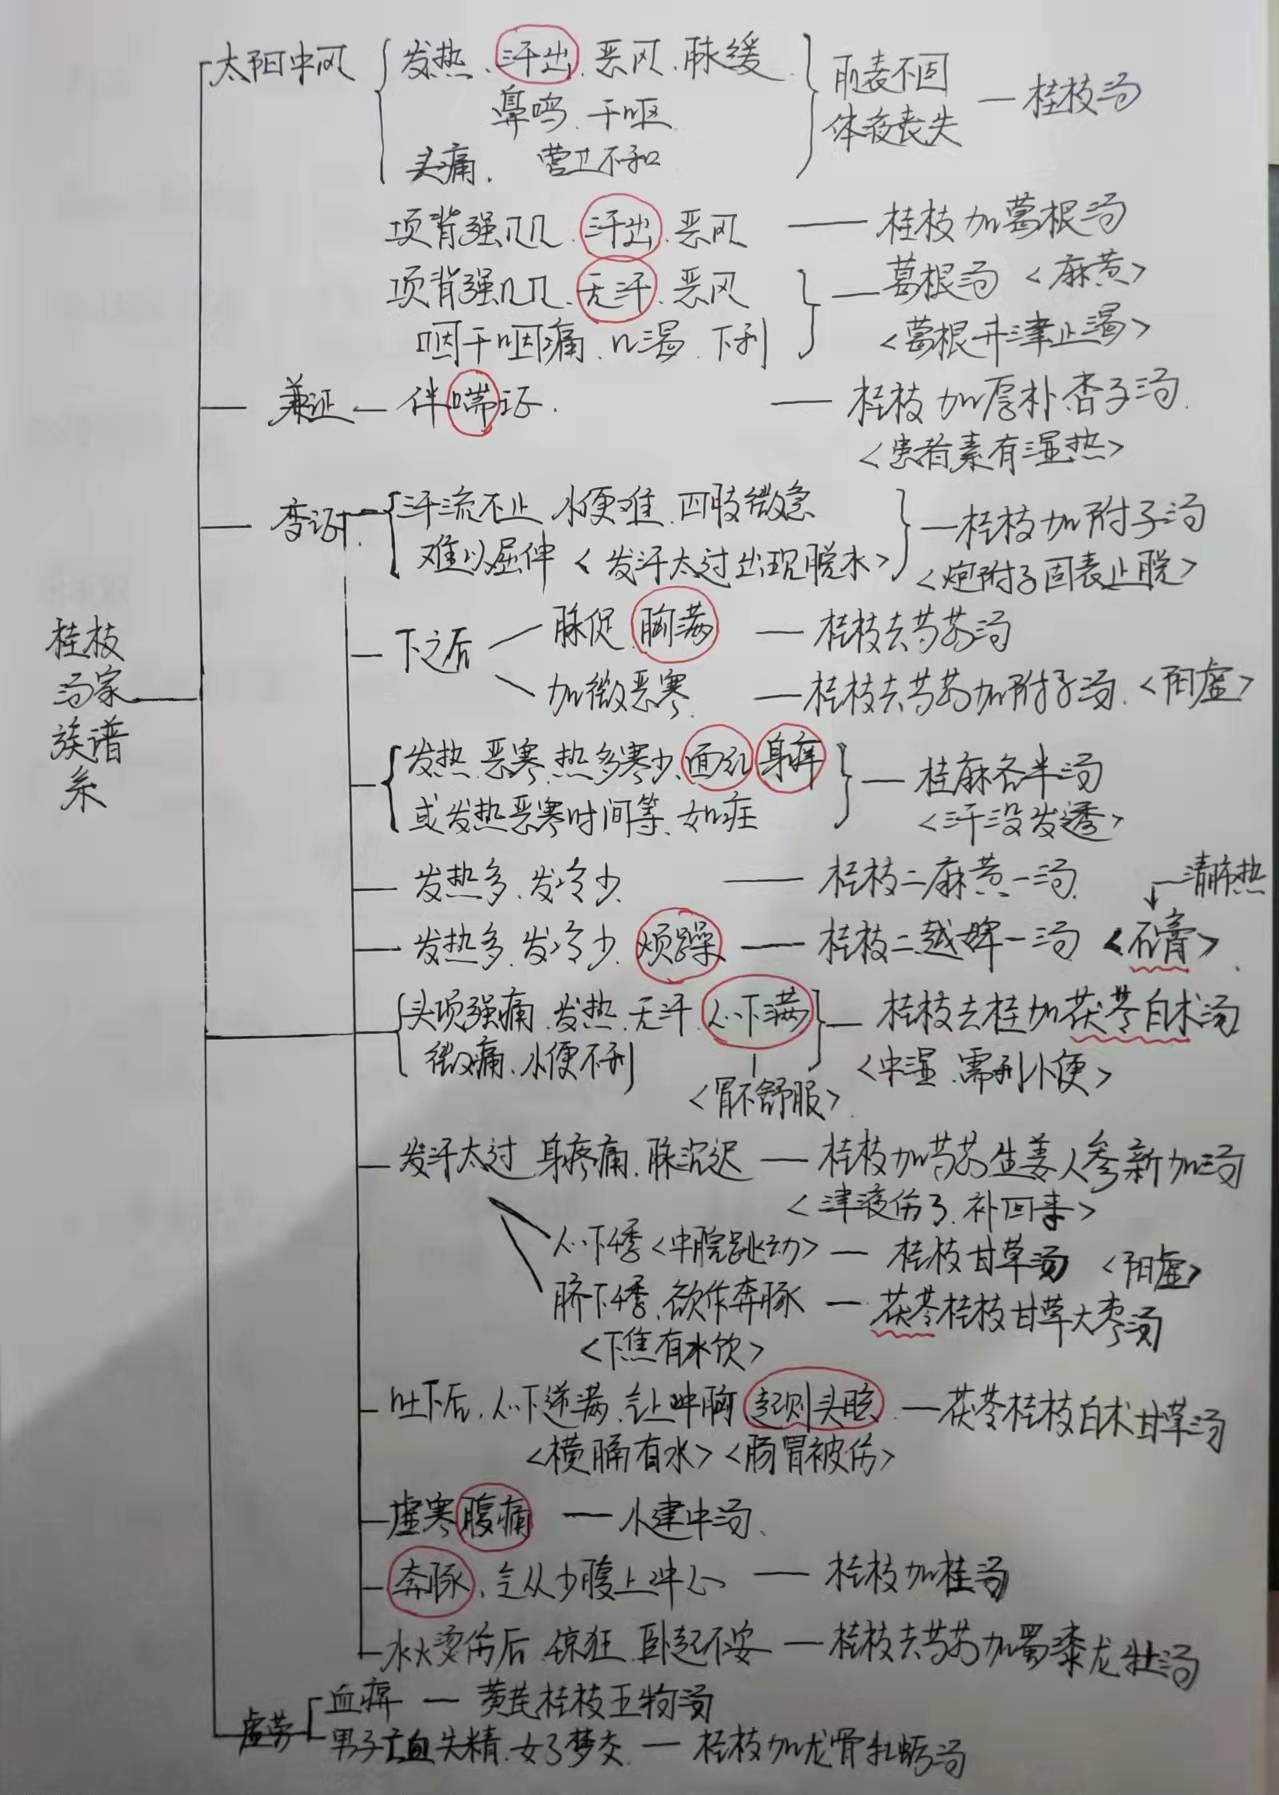 桂枝
汤家
族谱
系
太阳中风
发热、汗出、恶风、脉缓
鼻鸣、干呕
头痛、营卫不和
丽表不固
体液丧失
— 桂枝汤
项背强几几、汗出、恶风 — 桂枝加葛根汤
项背强几几、无汗、恶风
咽干咽痛、口渴、下利
— 葛根汤 <麻黄>
<葛根升津止渴>
兼证 — 伴喘证. — 桂枝加厚朴杏子汤.
<患者素有湿热>
变证.
汗流不止、小便难、四肢微急
难以屈伸 <发汗太过出现脱水>
— 桂枝加附子汤
<炮附子固表止脱>
下之后
脉促、胸满 — 桂枝去芍药汤
加微恶寒. — 桂枝去芍药加附子汤. <阳虚>
发热、恶寒、热多寒少、面红、身痒
或发热恶寒时间等、如症
— 桂麻各半汤
<汗没发透>
发热多、发冷少. — 桂枝二麻黄一汤.
清肺热
发热多、发冷少、烦躁 — 桂枝二越婢一汤 <石膏>.
头项强痛、发热、无汗、心下满
微痛、小便不利
<胃不舒服>.
— 桂枝去桂加茯苓白术汤
<中湿、需利小便>
发汗太过 身疼痛、脉沉迟 — 桂枝加芍药生姜人参新加汤
<津液伤了、补回来>
心下悸<中脘跳动> — 桂枝甘草汤 <阳虚>
脐下悸、欲作奔豚 — 茯苓桂枝甘草大枣汤
<下焦有水饮>
吐下后、心下逆满、气上冲胸、起则头眩. — 茯苓桂枝白术甘草汤
<横膈有水> <肠胃被伤>
虚寒腹痛 — 小建中汤、
奔豚、气从少腹上冲心 — 桂枝加桂汤
水火烫伤后、惊狂、卧起不安 — 桂枝去芍药加蜀漆龙牡汤
虚劳
血痹 — 黄芪桂枝五物汤
男子亡血失精、女子梦交. — 桂枝加龙骨牡蛎汤